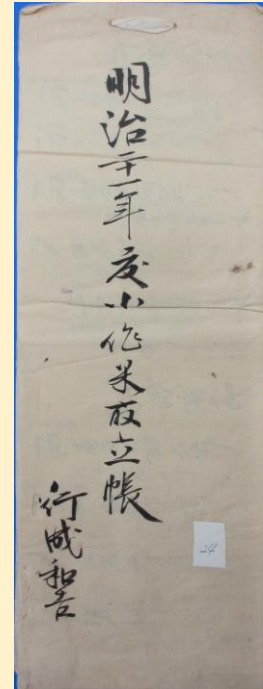 明治二十一年度小作米取立帳
行成和吉
24